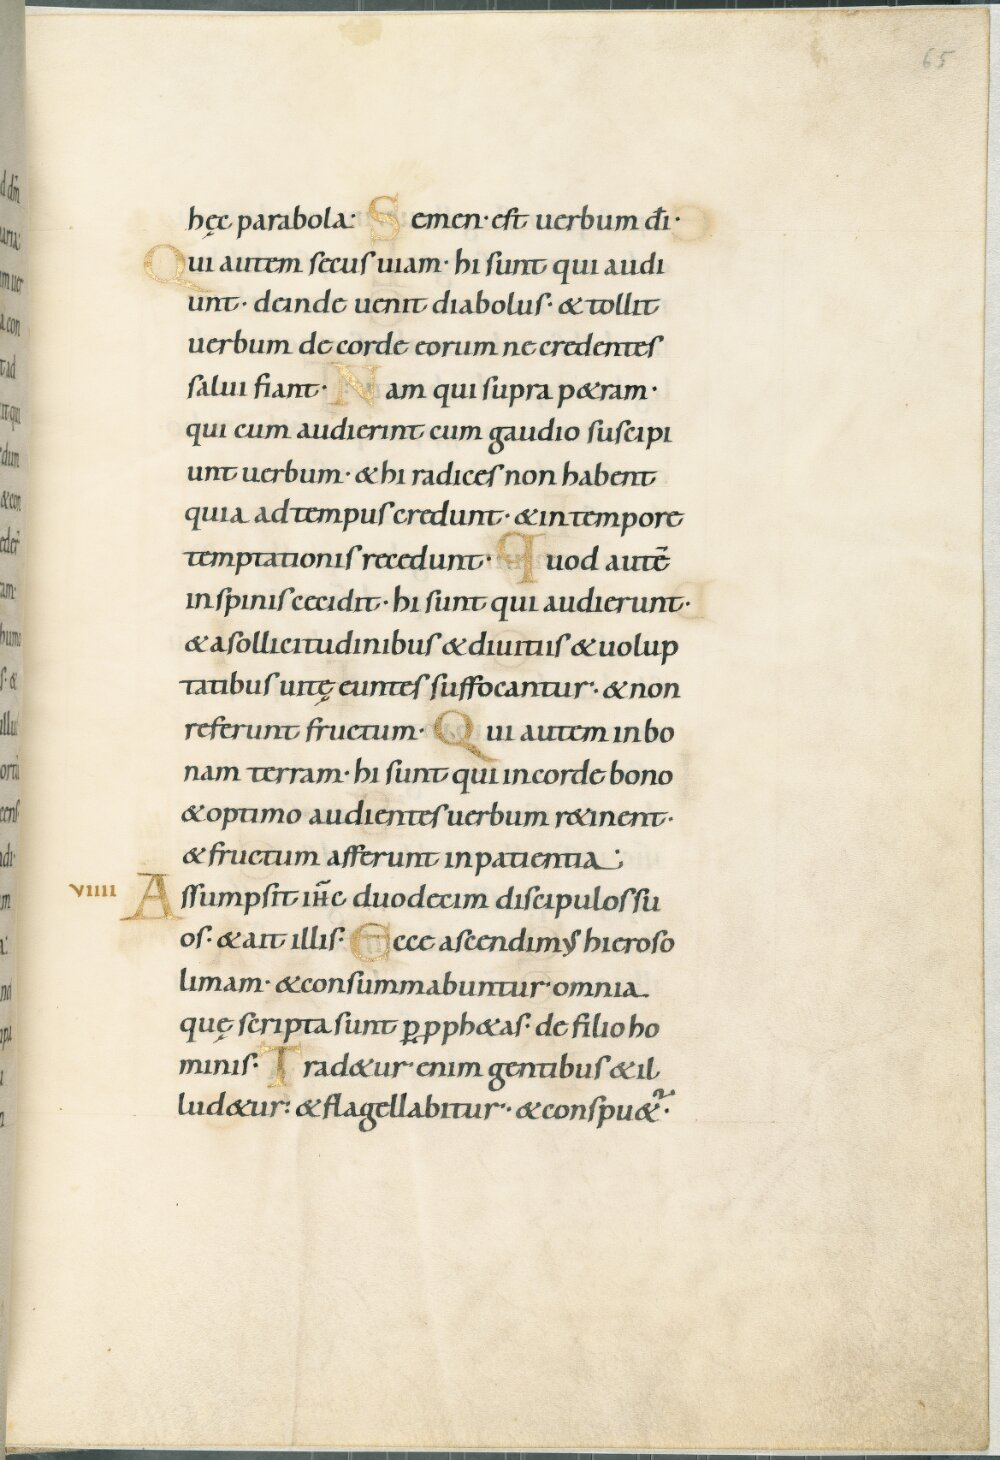 65
hęc parabola: Semen· est uerbum dī·
Qui autem secus uiam· hi sunt qui audi
unt· deinde uenit diabolus· & tollit
uerbum de corde eorum ne credentes
salui fiant· Nam qui supra p&ram·
qui cum audierint cum gaudio suscipi
unt uerbum· & hi radices non habent
quia ad tempus credunt· & in tempore
temptationis recedunt· Quod autē
in spinis cecidit· hi sunt qui audierunt·
& a sollicitudinibus & diuitiis & uolup
tatibus uitę euntes suffocantur· & non
referunt fructum· Qui autem in bo
nam terram· hi sunt qui in corde bono
& optimo audientes uerbum r&inent·
& fructum afferunt in patientia;
viiii Assumpsit ih̄c duodecim discipulos su
os· & ait illis· Ecce ascendimus hieroso
limam· & consummabuntur omnia
quę scripta sunt ꝑ pph&as· de filio ho
minis· Trad&ur enim gentibus & il
lud&ur: & flagellabitur· & conspu&ur·